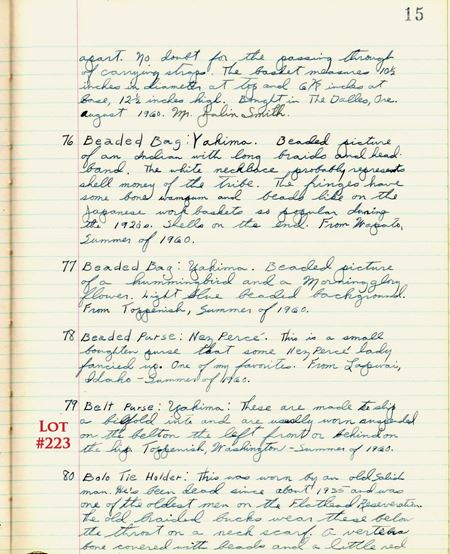 15
apart. No doubt for the passing through
of carrying straps. The basket measures 10½
inches in diameter at top and 6 inches at
base, 12½ inches high. Bought in The Dalles, Ore.
August 1960. Mr. Smith.
76 Beaded Bag: Yakima. Beaded picture
of an Indian with long braids and head-
band. The white necklace probably represents
shell money of the tribe. The fringes have
some bone wampum and beads like on the
Japanese work baskets so popular during
the 1920s. Shells on the end. From Wapato,
Summer of 1960.
77 Beaded Bag: Yakima. Beaded picture
of a hummingbird and a Morningglory
flower. Light blue beaded background.
From Toppenish, Summer of 1960.
78 Beaded Purse: Nez Percé. This is a small
boughten purse that some Nez Percé lady
fancied up. One of my favorites. From Lapwai,
Idaho - Summer of 1960.
79 Belt Purse: Yakima: These are made to slip
a billfold into and are usually worn suspended
on the belt on the left front or behind on
the hip. Toppenish, Washington - Summer of 1960.
LOT
#223
80 Bolo Tie Holder: This was worn by an old Salish
man. He's been dead since about 1935 and was
one of the oldest men on the Flathead Reservation.
The old braided bucks wear these below
the throat on a neck scarf. A vertebra
bone covered with beads and a little red